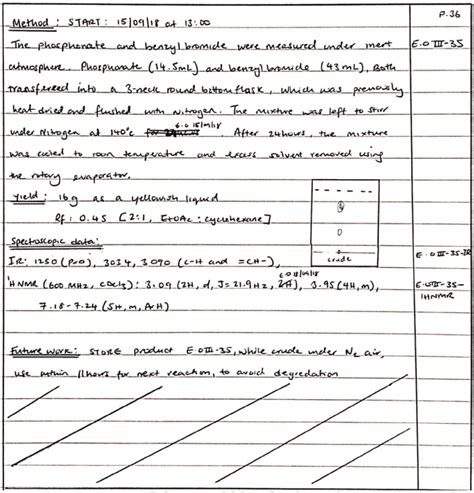 P.36
Method : START : 15/09/18 at 13:00
The phosphonate and benzyl bromide were measured under inert E.O III-35
atmosphere. Phosphonate (14.5mL) and benzyl bromide (43mL), Both
transfereed into a 3-neck round bottom flask, which was previously
heat dried and flushed with nitrogen. The mixture was left to stir
under Nitrogen at 140°C E.O 15/09/18 . After 24hours, the mixture
was cooled to room temperature and excess solvent removed using
the rotary evaporator.
Yield : 16g as a yellowish liquid
Rf : 0.45 [2:1, EtOAc : cyclohexane]
crude
Spectroscopic data:
IR: 1250 (P=O), 3034, 3090 (C-H and =CH-), E.O III-35-IR
E.O 18/09/18
¹HNMR (600 MHz, CDCl₃): 3.09 (2H, d, J=21.9Hz, 2H), 3.95 (4H, m), E.O III-35-
1HNMR
7.18-7.24 (5H, m, ArH)
Future work: STORE product E.O III-35, while crude under N₂ air,
use within 11hours for next reaction, to avoid degredation